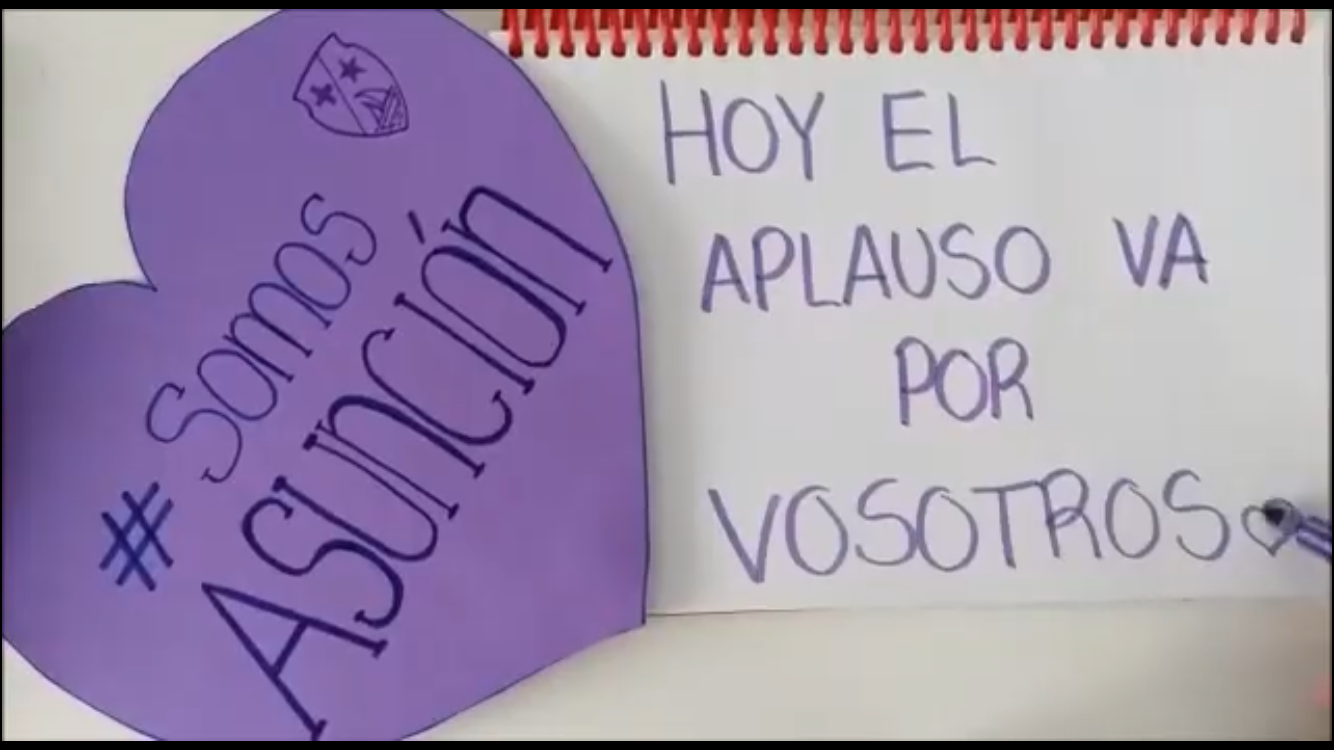 #Somos
Asunción
HOY EL
APLAUSO VA
POR
VOSOTROS